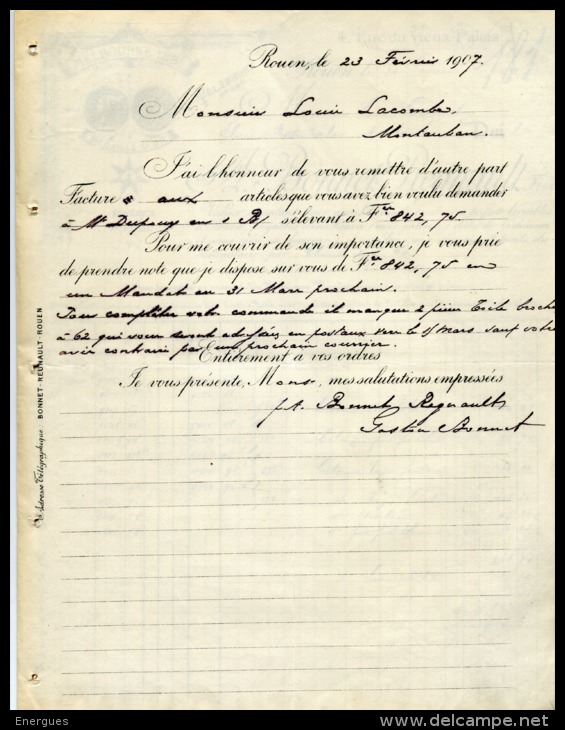 Rouen, le 23 Février 1907.
Monsieur Louis Lacombe,
Montauban.
J'ai l'honneur de vous remettre d'autre part
Facture aux articles que vous avez bien voulu demander
à Mr Dupouy s'élevant à Frs 842,75
Pour me couvrir de son importance, je vous prie
de prendre note que je dispose sur vous de Frs 842,75 en
un Mandat au 31 Mars prochain.
Pour compléter votre commande il manque 2 pièces Toile
à 62 qui vous seront en postaux vers le 15 Mars sauf votre
avis contraire par prochain courrier.
Entièrement à vos ordres
Je vous présente, Monsr, mes salutations empressées
Bonnet Regnault
Gaston Bonnet
Adresse Télégraphique: BONNET-REGNAULT-ROUEN
4, Rue du Vieux Palais
Energues
www.delcampe.net